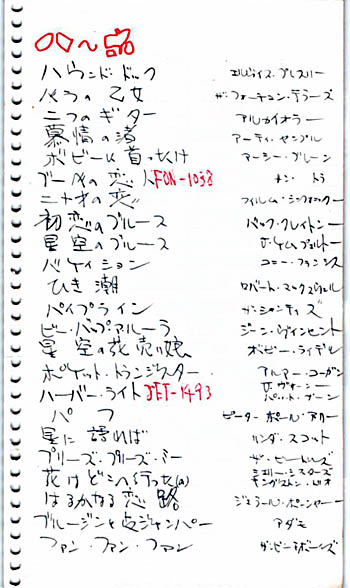 〇〇〜品
ハウンド・ドック エルヴィス・プレスリー
バラの乙女 ザ・フォーチュン・テラーズ
二つのギター アルカイオラー
慕情の渚 アーティ・センプル
ボビーに首ったけ マーシー・ブレーン
ブーメの恋人 FON-1038 ナン・トラ
二十才の恋 フィルム・シンフォニック
初恋のブルース バック・クレイトン
星空のブルース
バケイション コニー・フランシス
ひき潮 ロバート・マックスウェル
パイプライン ザ・シャンティズ
ビー・バップ・アルーラ ジーン・ヴィンセント
星空の花売り娘 ボビー・ライデル
ポケット・トランジスター アルマー・コーガン
ハーバー・ライト JET-1493
パフ ピーター ポール・マリー
星に語れば リンダ・スコット
プリーズ・プリーズ・ミー ザ・ビートルズ
花はどこへ行った(a) キングストン・トリオ
はるかなる恋路 ジェラール・
ブルージンと皮ジャンパー アダモ
ファン・ファン・ファン ザ・ビーチボーイズ